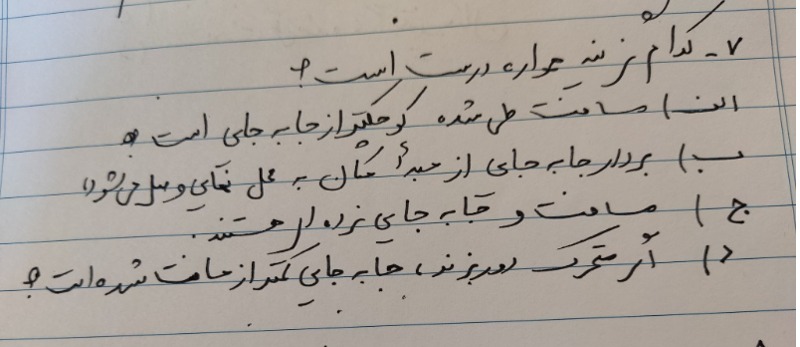 ۷- کدام گزینه همواره درست است؟
الف) مسافت طی شده کوچکتر از جابه جایی است
ب) بردار جابه جایی از مبدأ مکان به محل نهایی وصل می‌شود
ج) مسافت و جابه جایی نرده ای هستند.
د) اگر متحرک دور بزند، جابه جایی کمتر از مسافت شده است؟